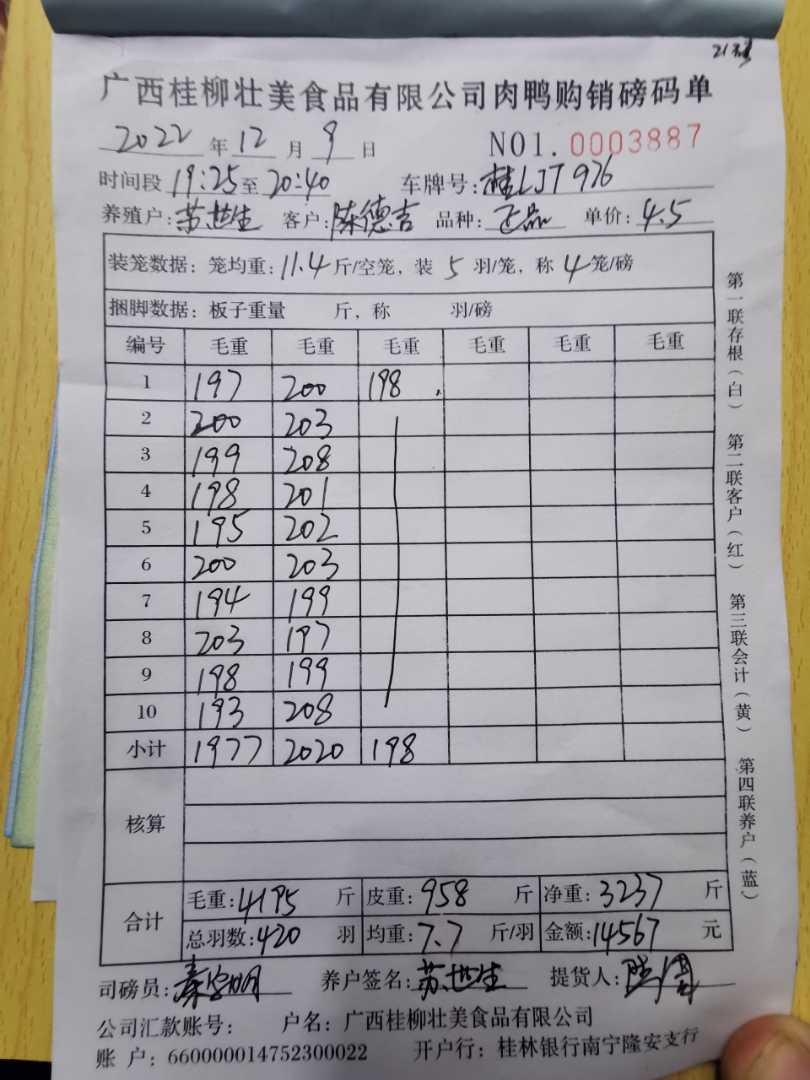 广西桂柳壮美食品有限公司肉鸭购销磅码单
2022 年 12 月 9 日 NO1. 0003887
时间段 19:25 至 20:40 车牌号: 桂LJT976
养殖户: 苏世生 客户: 陈德吉 品种: 正品 单价: 4.5
装笼数据: 笼均重: 11.4 斤/空笼, 装 5 羽/笼, 称 4 笼/磅
捆脚数据: 板子重量 斤, 称 羽/磅
编号 毛重 毛重 毛重 毛重 毛重 毛重
1 197 200 198
2 200 203
3 199 208
4 198 201
5 195 202
6 200 203
7 194 199
8 203 197
9 198 199
10 193 208
小计 1977 2020 198
核算
合计
毛重: 4195 斤 皮重: 958 斤 净重: 3237 斤
总羽数: 420 羽 均重: 7.7 斤/羽 金额: 14567 元
司磅员: 养户签名: 苏世生 提货人:
公司汇款账号: 户名: 广西桂柳壮美食品有限公司
账 户: 660000014752300022 开户行: 桂林银行南宁隆安支行
第一联存根(白) 第二联客户(红) 第三联会计(黄) 第四联养户(蓝)